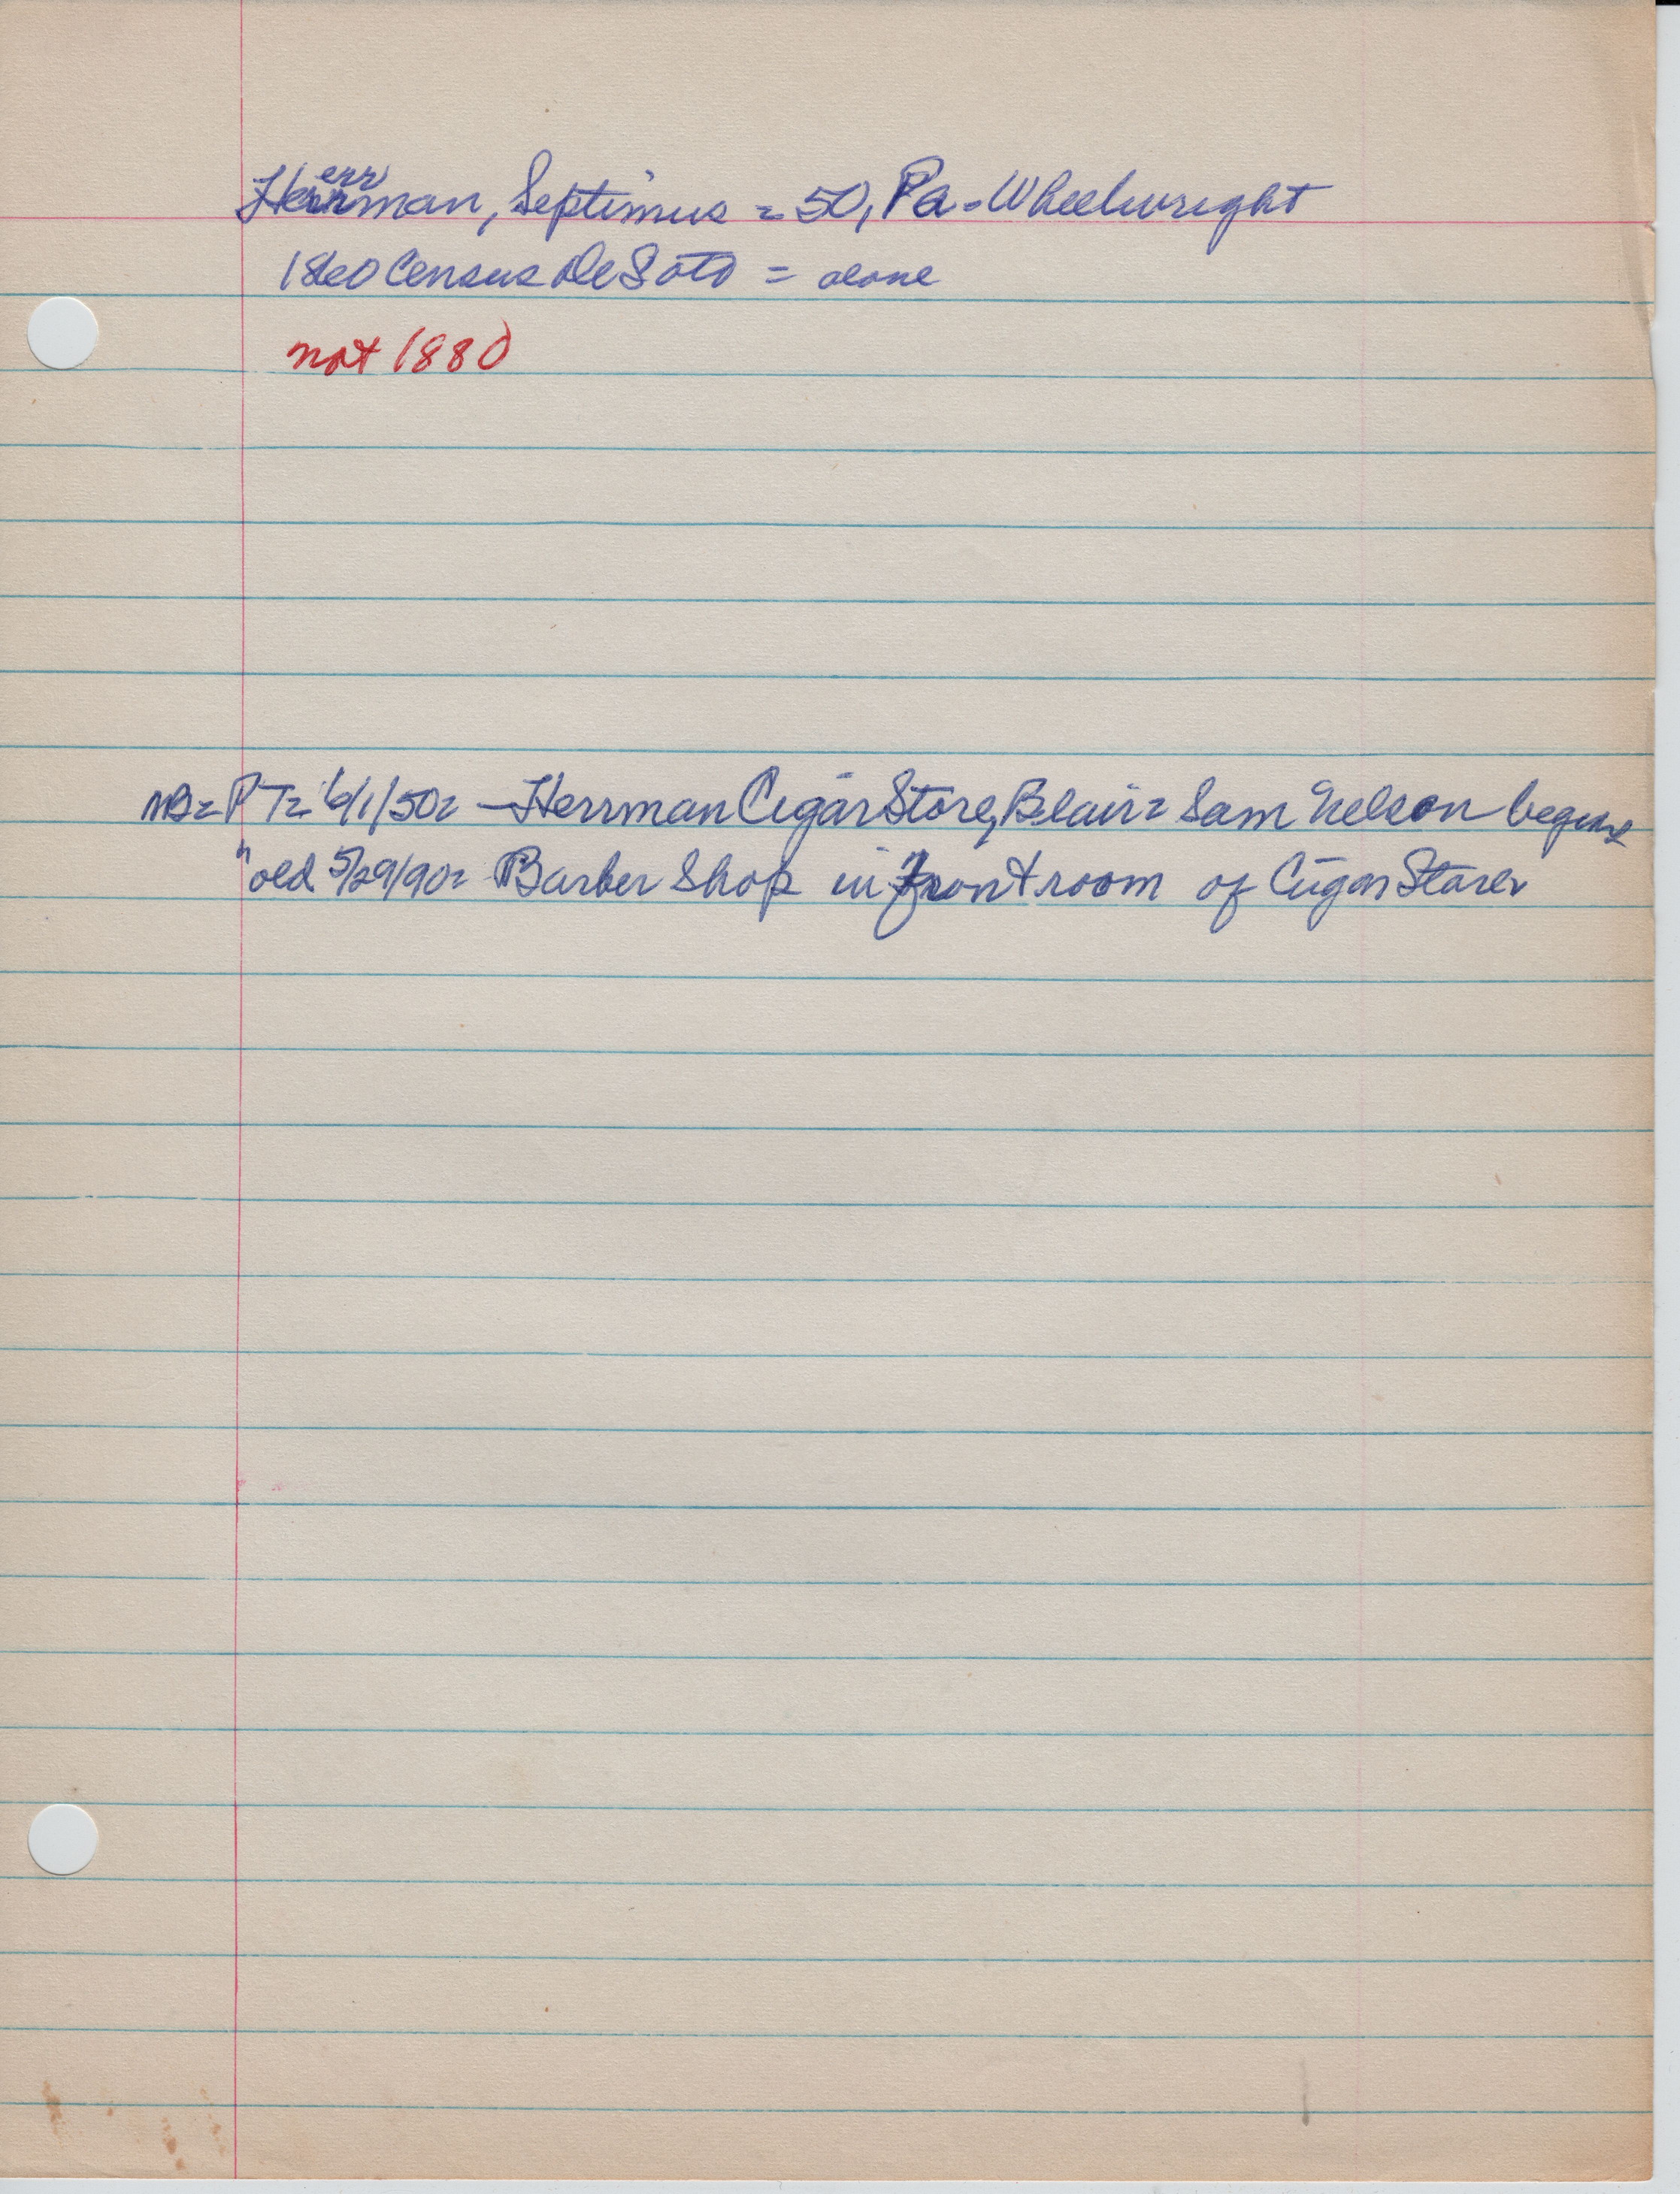 Herrman, Septimus = 50, Pa - Wheelwright
1860 Census DeSoto = alone
not 1880
NB= PT= 6/1/50= - Herrman Cigar Store, Blair= Sam Nelson begins
"old 5/29/90= Barber Shop in front room of Cigar Store